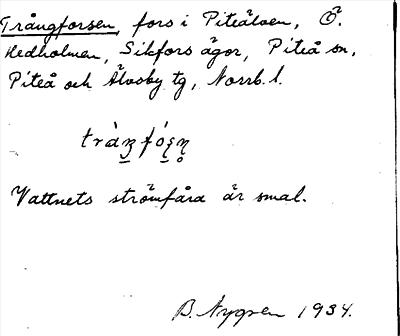 Trångforsen, fors i Piteälven, Ö.
Hedholmen, Sikfors ägor, Piteå sn,
Piteå och Älvsby tg, Norrb. l.
Vattnets strömfåra är smal.
B. Nygren 1934.